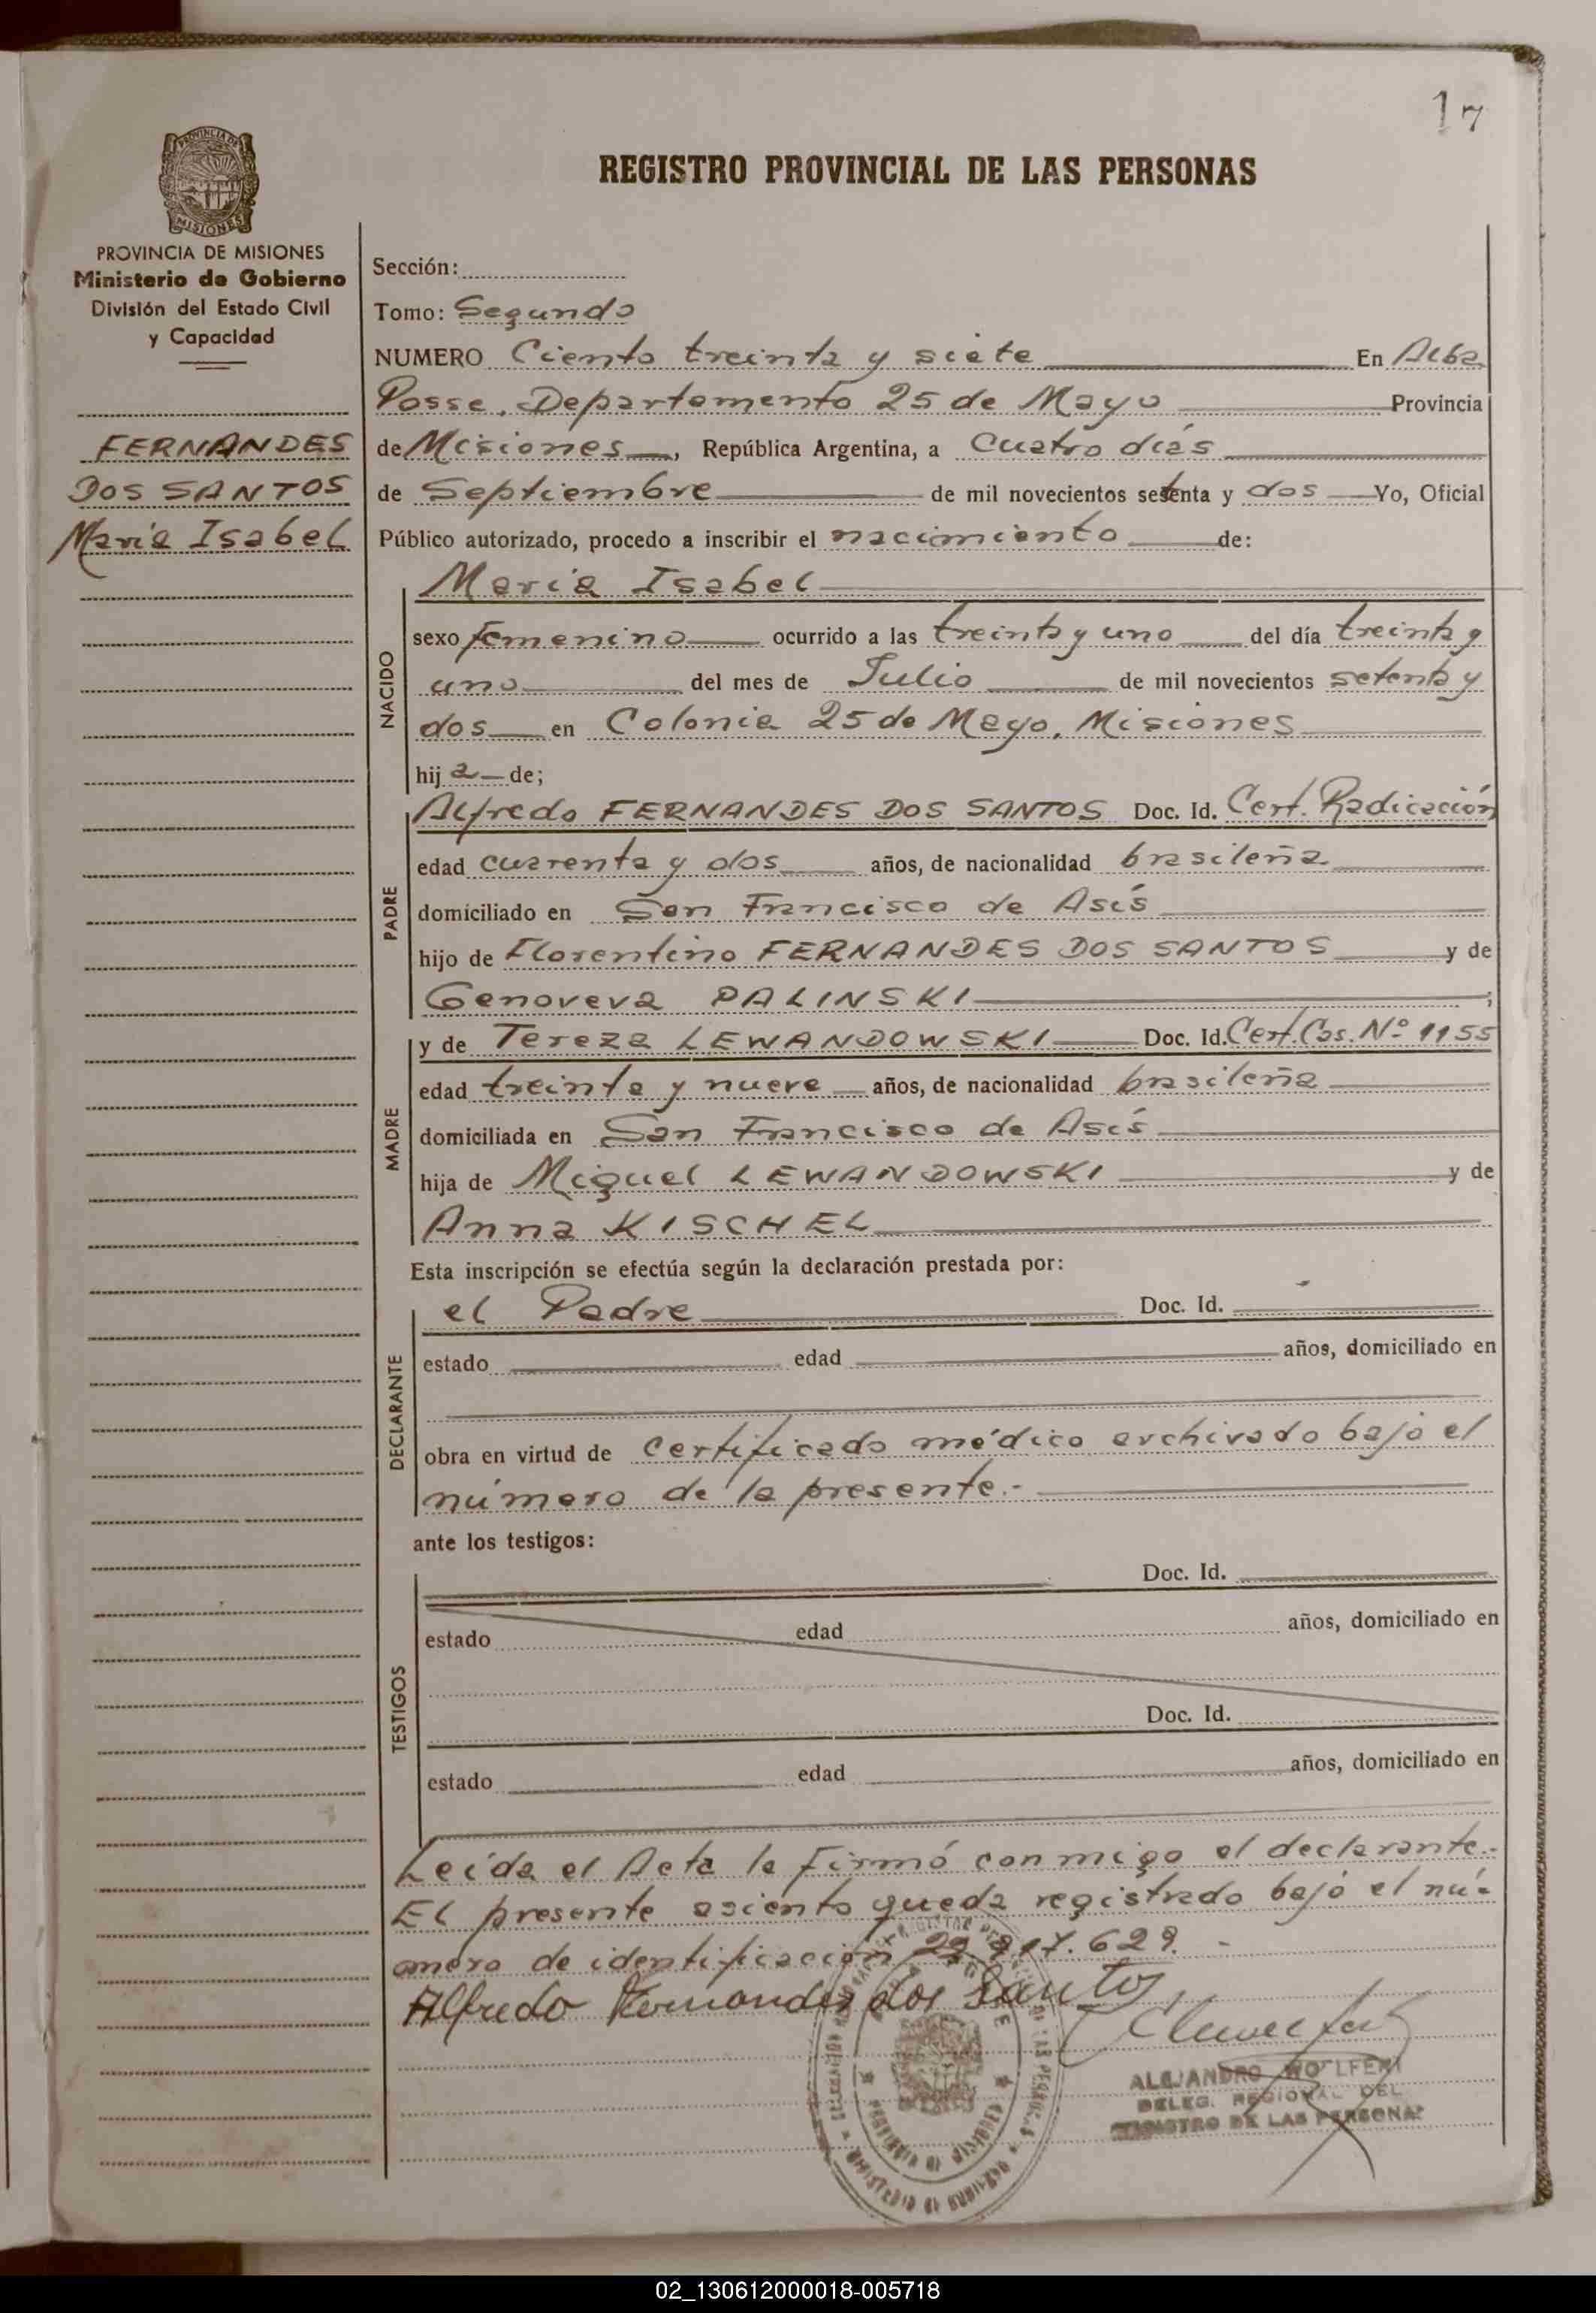 17
REGISTRO PROVINCIAL DE LAS PERSONAS
PROVINCIA DE MISIONES
PROVINCIA DE MISIONES
Ministerio de Gobierno
División del Estado Civil
y Capacidad
FERNANDES
DOS SANTOS
María Isabel
Sección:
Tomo: Segundo
NUMERO Ciento treinta y siete En Alba
Posse, Departamento 25 de Mayo Provincia
de Misiones, República Argentina, a cuatro días
de Septiembre de mil novecientos setenta y dos Yo, Oficial
Público autorizado, procedo a inscribir el nacimiento de:
NACIDO
María Isabel
sexo femenino ocurrido a las treinta y uno del día treinta y
uno del mes de Julio de mil novecientos setenta y
dos en Colonia 25 de Mayo, Misiones
hij a de;
PADRE
Alfredo FERNANDES DOS SANTOS Doc. Id. Cert. Radicación
edad cuarenta y dos años, de nacionalidad brasileña
domiciliado en San Francisco de Asís
hijo de Florentino FERNANDES DOS SANTOS y de
Genoveva PALINSKI ;
MADRE
y de Tereza LEWANDOWSKI Doc. Id. Cert. Cas. Nº 1155
edad treinta y nueve años, de nacionalidad brasileña
domiciliada en San Francisco de Asís
hija de Miguel LEWANDOWSKI y de
Anna KISCHEL
Esta inscripción se efectúa según la declaración prestada por:
DECLARANTE
el Padre Doc. Id.
estado edad años, domiciliado en
obra en virtud de Certificado médico archivado bajo el
número de la presente.-
ante los testigos:
TESTIGOS
Doc. Id.
estado edad años, domiciliado en
Doc. Id.
estado edad años, domiciliado en
Leída el Acta la firmó conmigo el declarante.-
El presente asiento queda registrado bajo el nú-
mero de identificación 17.629.-
Alfredo Fernandes dos Santos
ALEJANDRO WOLFERT
DELEG. REGIONAL DEL
REGISTRO DE LAS PERSONAS
PROVINCIA DE MISIONES
MINISTERIO DE GOBIERNO
02_130612000018-005718